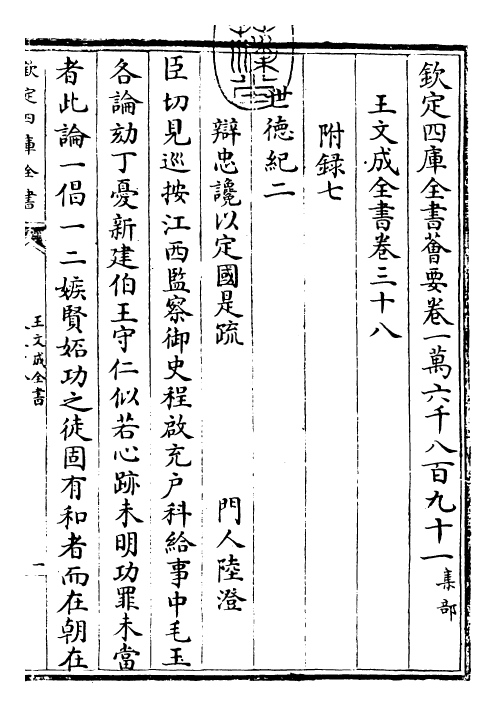 欽定四庫全書薈要卷一萬六千八百九十一集部
王文成全書卷三十八
附録七
世德紀二
辯忠讒以定國是疏 門人陸澄
臣切見巡按江西監察御史程啟充户科給事中毛玉
各論劾丁憂新建伯王守仁似若心跡未明功罪未當
者此論一倡一二嫉賢妬功之徒固有和者而在朝在
欽定四庫全書
王文成全書
一